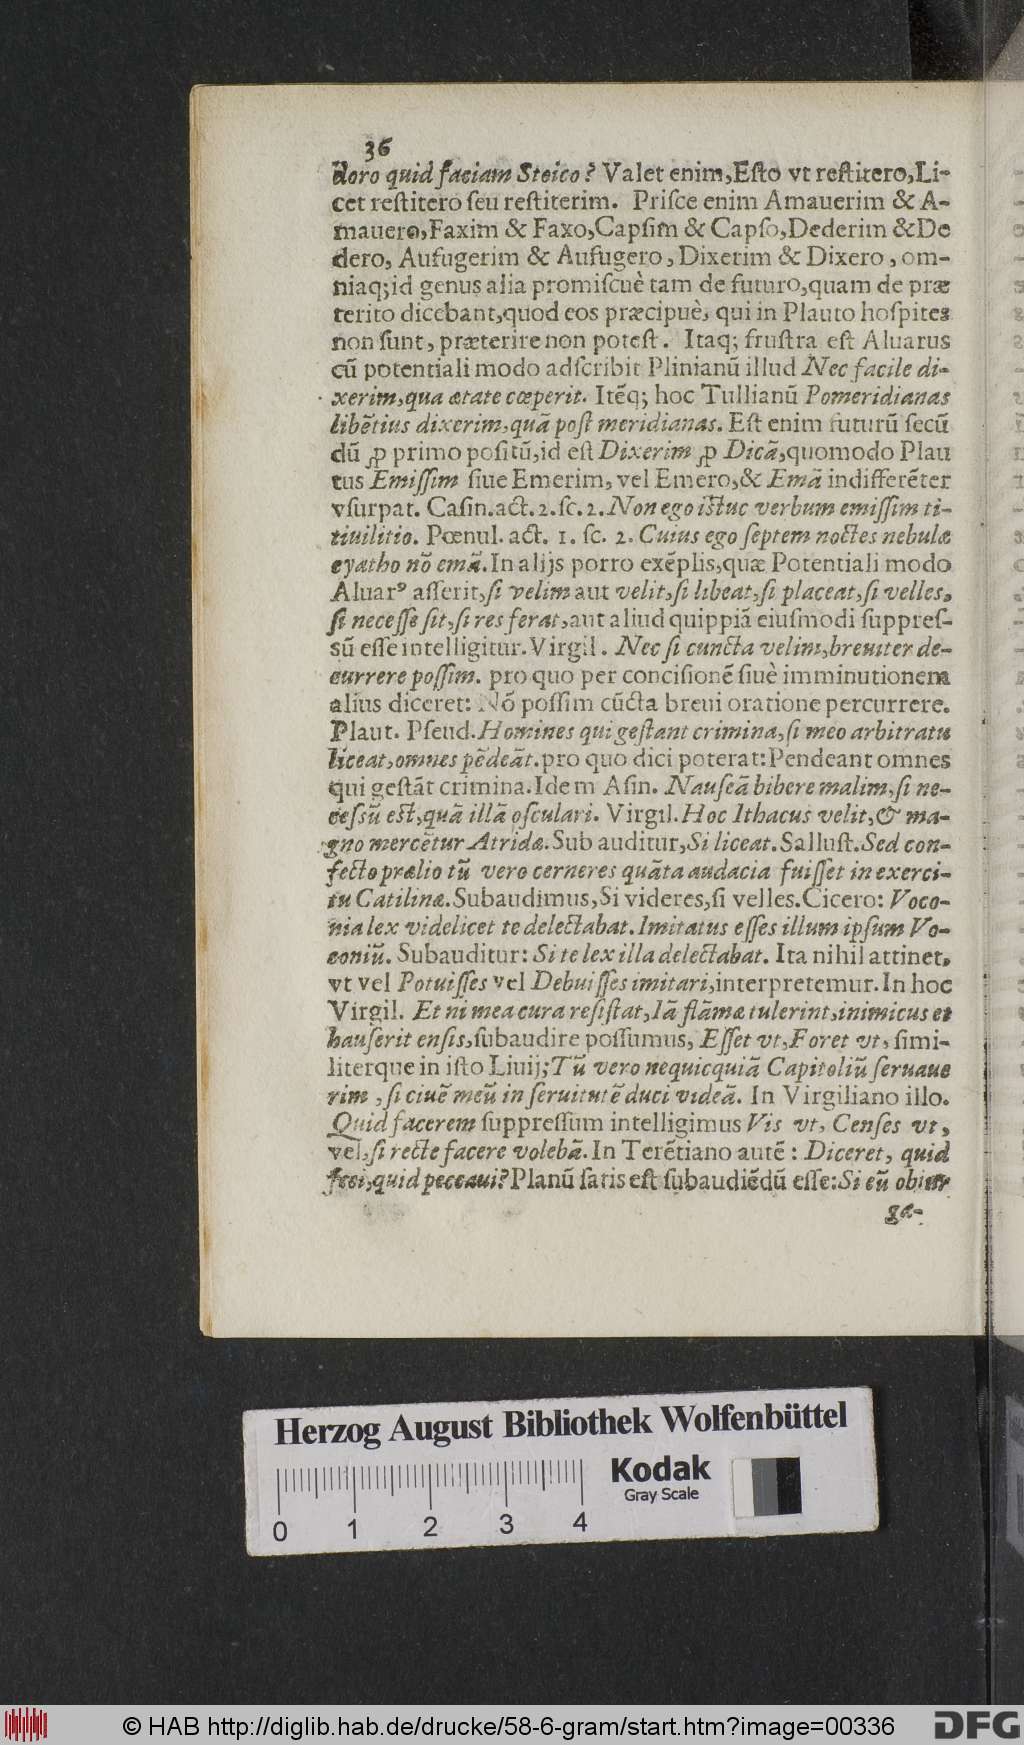 36
doro quid faciam Stoico? Valet enim, Esto vt restitero, Li-
cet restitero seu restiterim. Prisce enim Amauerim & A-
mauero, Faxim & Faxo, Capsim & Capso, Dederim & De
dero, Aufugerim & Aufugero, Dixerim & Dixero, om-
niaq; id genus alia promiscuè tam de futuro, quam de præ
terito dicebant, quod eos præcipuè, qui in Plauto hospites
non sunt, præterire non potest. Itaq; frustra est Aluarus
cũ potentiali modo adscribit Plinianũ illud Nec facile di-
xerim, qua ætate cœperit. Itẽq; hoc Tullianũ Pomeridianas
libẽtius dixerim, quã post meridianas. Est enim futurũ secũ
dũ ꝓ primo positũ, id est Dixerim ꝓ Dicã, quomodo Plau
tus Emissim siue Emerim, vel Emero, & Emã indifferẽter
vsurpat. Casin. act. 2. sc. 2. Non ego istuc verbum emissim ti-
tiuilitio. Pœnul. act. 1. sc. 2. Cuius ego septem noctes nebulæ
cyatho nõ emã. In alijs porro exẽplis, quæ Potentiali modo
Aluarꝰ asserit, si velim aut velit, si libeat, si placeat, si velles,
si necesse sit, si res ferat, aut aliud quippiã eiusmodi suppres-
sũ esse intelligitur. Virgil. Nec si cuncta velim, breuiter de-
currere possim. pro quo per concisionẽ siuè imminutionem
alius diceret: Nõ possim cũcta breui oratione percurrere.
Plaut. Pseud. Homines qui gestant crimina, si meo arbitratu
liceat, omnes pẽdeãt. pro quo dici poterat: Pendeant omnes
qui gestãt crimina. Idem Asin. Nauseã bibere malim, si ne-
cessũ est, quã illã osculari. Virgil. Hoc Ithacus velit, & ma-
gno mercẽtur Atridæ. Sub auditur, Si liceat. Sallust. Sed con-
fecto prælio tũ vero cerneres quãta audacia fuisset in exerci-
tu Catilinæ. Subaudimus, Si videres, si velles. Cicero: Voco-
nia lex videlicet te delectabat. Imitatus esses illum ipsum Vo-
coniũ. Subauditur: Si te lex illa delectabat. Ita nihil attinet,
vt vel Potuisses vel Debuisses imitari, interpretemur. In hoc
Virgil. Et ni mea cura resistat, Iã flãmæ tulerint, inimicus et
hauserit ensis, subaudire possumus, Esset vt, Foret vt, simi-
literque in isto Liuij; Tũ vero nequicquiã Capitoliũ seruaue
rim, si ciuẽ meũ in seruitutẽ duci videã. In Virgiliano illo.
Quid facerem suppressum intelligimus Vis vt, Censes vt,
vel, si recte facere volebã. In Terẽtiano autẽ: Diceret, quid
feci, quid peccaui? Planũ satis est subaudiẽdũ esse: Si eũ obiur
ga-
Herzog August Bibliothek Wolfenbüttel
Kodak
Gray Scale
0 1 2 3 4
© HAB http://diglib.hab.de/drucke/58-6-gram/start.htm?image=00336
DFG